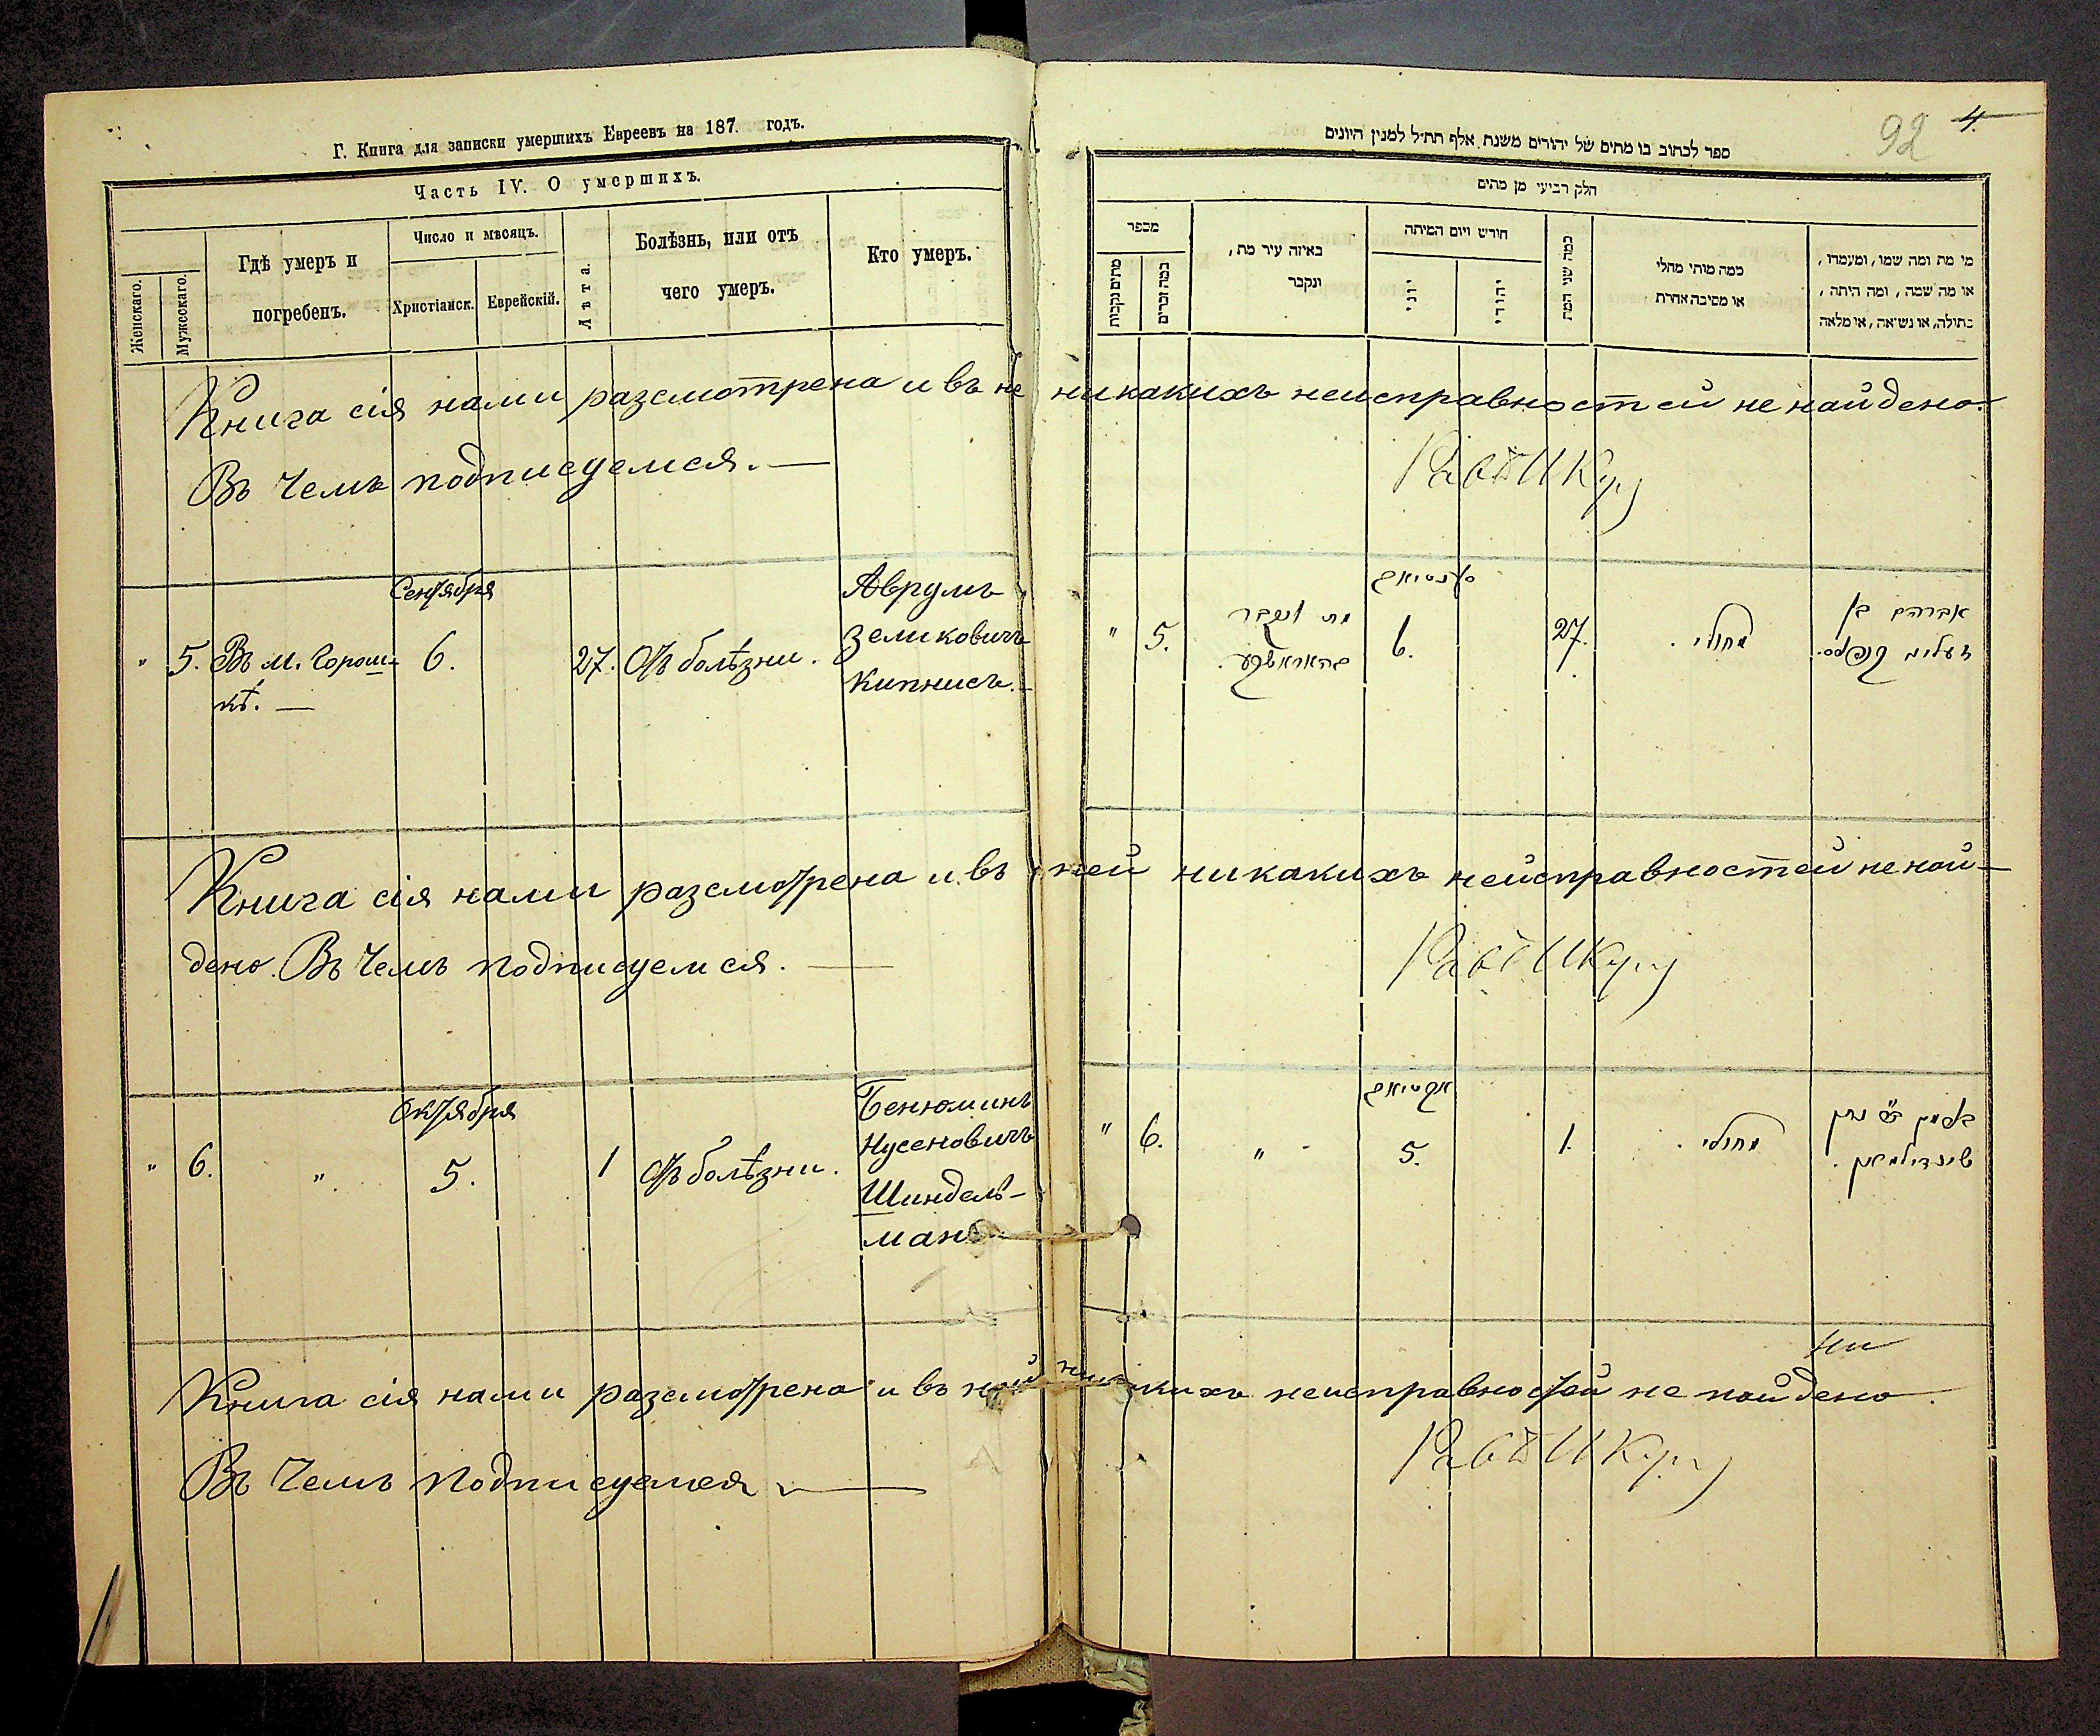 Г. Книга для записки умершихъ Евреевъ на 187 годъ.
Часть IV. О умершихъ.
Женскаго.
Мужескаго.
Гдѣ умеръ и
погребенъ.
Число и мѣсяцъ.
Христіанск.
Еврейскій.
Лѣта.
Болѣзнь, или отъ
чего умеръ.
Кто умеръ.
92
4.
ספר לכתוב בו מתים של יהודים משנת אלף תת״ל למנין היונים
חלק רביעי מן מתים
מספר
מתים נקבות
כמה זכרים
באיזה עיר מת,
ונקבר
חודש ויום המיתה
יוני
יהודי
כמה שני המת
כמה מותי מחלי
או מסיבה אחרת
מי מת ומה שמו, ומעמדו,
או מה שמה, ומה היתה,
בתולה, או נשואה, או מלאה
Книга сія нами разсмотрена и въ не никакихъ неисправностей не найдено.
Въ чемъ подписуемся. —
Сентября
Аврумъ
" 5. Въ м. Горош- 6. 27. Отъ болѣзни. Зеликовичъ
кѣ. — Кипнисъ. —
סענטיאב
" 5. מת ונקבר 6. 27. מחולי. אברהם בן
בהאראשקע. זעליג קיפניס.
Книга сія нами разсмотрена и въ ней никакихъ неисправностей не най-
дено. Въ чемъ подписуемся. —
Октября
Бенюминъ
" 6. " 5. 1 Отъ болѣзни. Нусеновичъ
Шиндель-
манъ
אקטיאב
" 6. " 5. 1. מחולי.
שינדילמאן.
ни
Книга сія нами разсмотрена и въ ней никакихъ неисправностей не найдено.
Въ чемъ подписуемся —